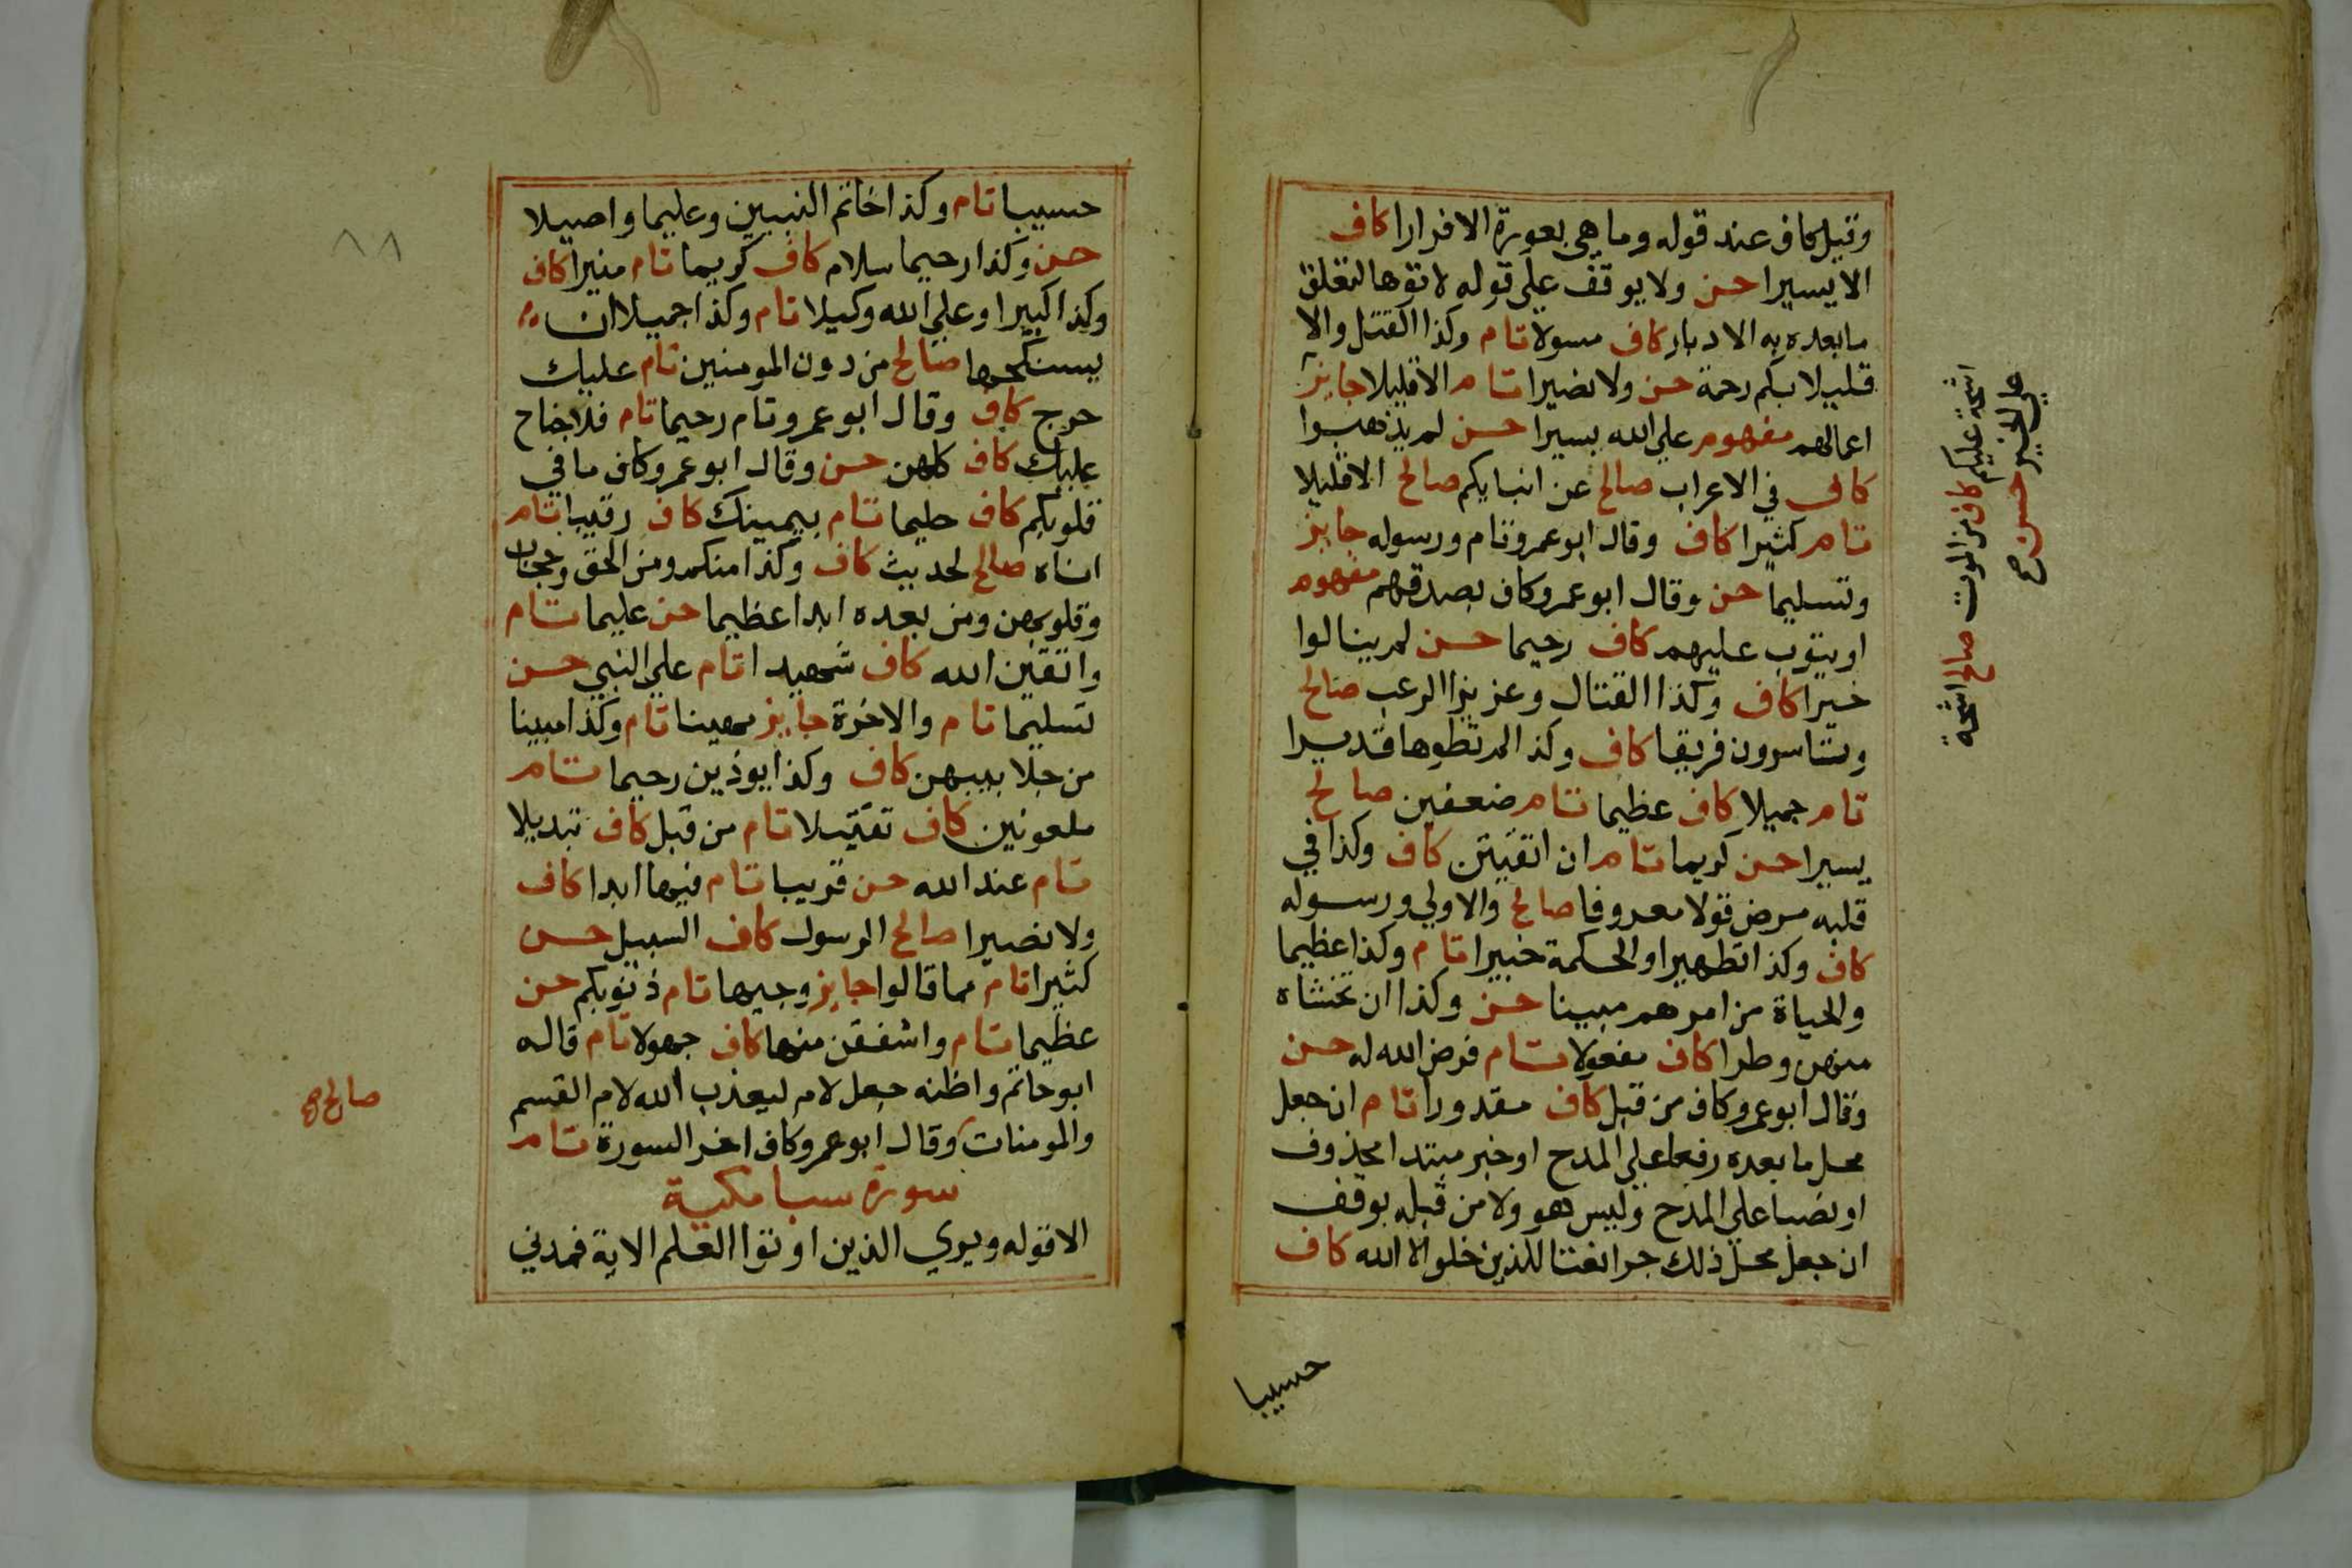 وقيل كاف عند قوله وما هي بعورة الا فرارا كاف
الا يسيرا حسن ولا يوقف علي قوله لاتوها لتعلق
ما بعده به الادبار كاف مسولا تام وكذا القتل والا
قليلا بكم رحمة حسن ولا نصيرا تام الا قليلا جايز
اعمالهم مفهوم علي الله يسيرا حسن لم يذهبوا
كاف في الاعراب صالح عن انبايكم صالح الا قليلا
تام كثيرا كاف وقال ابو عمرو تام ورسوله جايز
وتسليما حسن وقال ابو عمرو كاف بصدقهم مفهوم
او يتوب عليهم كاف رحيما حسن لم ينالوا
خيرا كاف وكذا القتال وعزيزا الرعب صالح
وتاسرون فريقا كاف وكذا لم تطوها قديرا
تام جميلا كاف عظيما تام ضعفين صالح
يسيرا حسن كريما تام ان اتقيتن كاف وكذا في
قلبه مرض قولا معروفا صالح والاولي ورسوله
كاف وكذا تطهيرا والحكمة خبيرا تام وكذا عظيما
والحياة من امرهم مبينا حسن وكذا ان تخشاه
منهن وطرا كاف مفعولا تام فرض الله له حسن
وقال ابو عمرو كاف من قبل كاف مقدورا تام ان جعل
محل ما بعده رفعا علي المدح او خبر مبتدا محذوف
او نصبا علي المدح وليس هو ولا من قبله بوقف
ان جعل محل ذلك جرا نعتا للذين خلوا الا الله كاف
حسيبا
اشحة عليكم كاف من الموت صالح اشحة
علي الخير حسن صح
حسيبا تام وكذا خاتم النبيين وعليما واصيلا
حسن وكذا رحيما سلام كاف كريما تام منيرا كاف
وكذا كبيرا وعلي الله وكيلا تام وكذا جميلا ان
يستنكحها صالح من دون المومنين تام عليك
حرج كاف وقال ابو عمرو تام رحيما تام فلا جناح
عليك كاف كلهن حسن وقال ابو عمرو كاف ما في
قلوبكم كاف حليما تام يمينك كاف رقيبا تام
اناه صالح لحديث كاف وكذا منكم ومن الحق وحجاب
وقلوبهن ومن بعده ابدا عظيما حسن عليما تام
واتقين الله كاف شهيدا تام علي النبي حسن
تسليما تام والاخرة جايز مهينا تام وكذا مبينا
من جلابيبهن كاف وكذا يوذين رحيما تام
ملعونين كاف تقتيلا تام من قبل كاف تبديلا
تام عند الله حسن قريبا تام فيها ابدا كاف
ولا نصيرا صالح الرسول كاف السبيل حسن
كثيرا تام مما قالوا جايز وجيها تام ذنوبكم حسن
عظيما تام واشفقن منها كاف جهولا تام قاله
ابو حاتم واظنه جعل لام ليعذب الله لام القسم
والمومنات وقال ابو عمرو كاف اخر السورة تام
سورة سبا مكية
الا قوله ويري الذين اوتوا العلم الاية فمدني
صالح صح
٨٨